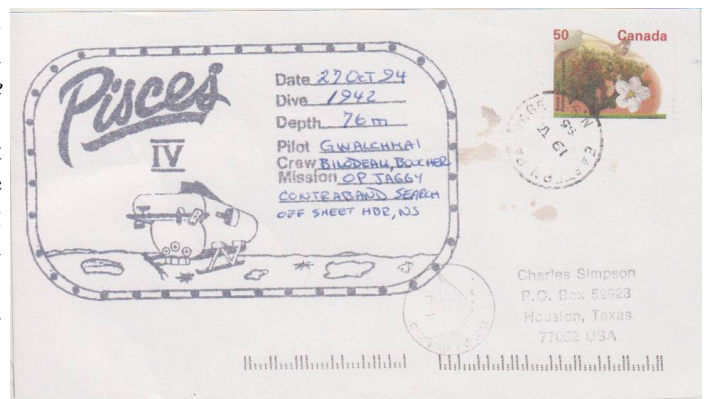 Pisces
IV
Date 27 OCT 94
Dive 1942
Depth 76m
Pilot GWALCHMAI
Crew BILODEAU, BOUCHER
Mission OP JAGGY
CONTRABAND SEARCH
OFF SHEET HBR, NS
50 Canada
EASTERN PA
Charles Simpson
P.O. Box
Houston, Texas
USA